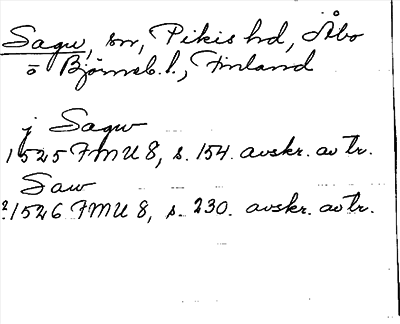 Sagu, sn, Pikis hd, Åbo
o Björneb. l., Finland
j Sagw
1525 FMU 8, s. 154. avskr. av tr.
Saw
?1526 FMU 8, s. 230. avskr. av tr.